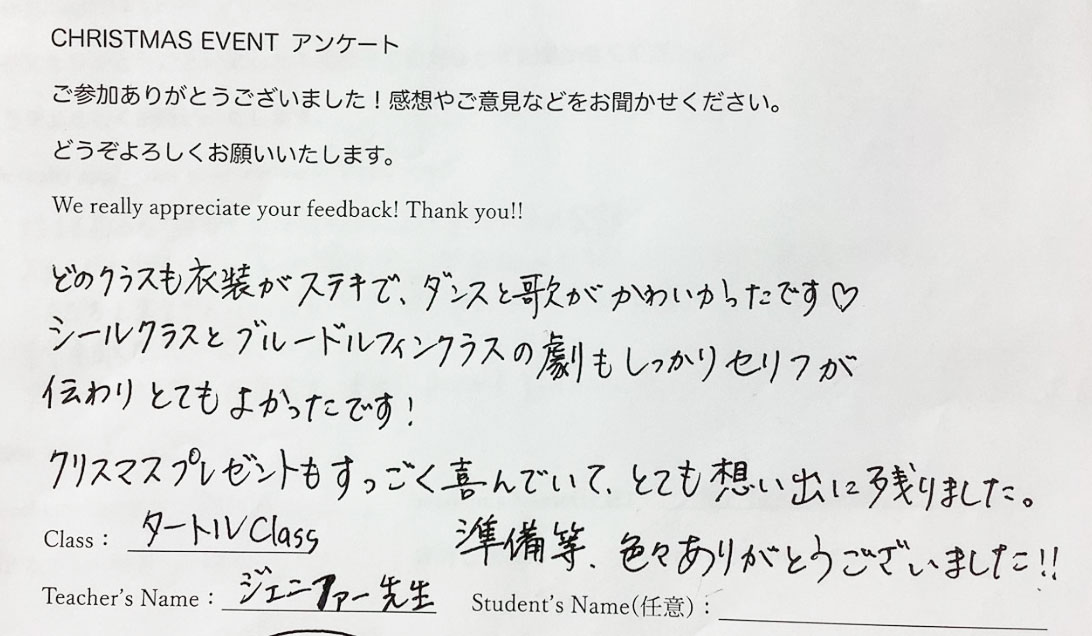 CHRISTMAS EVENT アンケート
ご参加ありがとうございました！感想やご意見などをお聞かせください。
どうぞよろしくお願いいたします。
We really appreciate your feedback! Thank you!!
どのクラスも衣装がステキで、ダンスと歌がかわいかったです♡
シールクラスとブルードルフィンクラスの劇もしっかりセリフが
伝わりとてもよかったです！
クリスマスプレゼントもすっごく喜んでいて、とても想い出に残りました。
準備等、色々ありがとうございました!!
Class： タートルClass
Teacher's Name： ジェニファー先生
Student's Name(任意)：